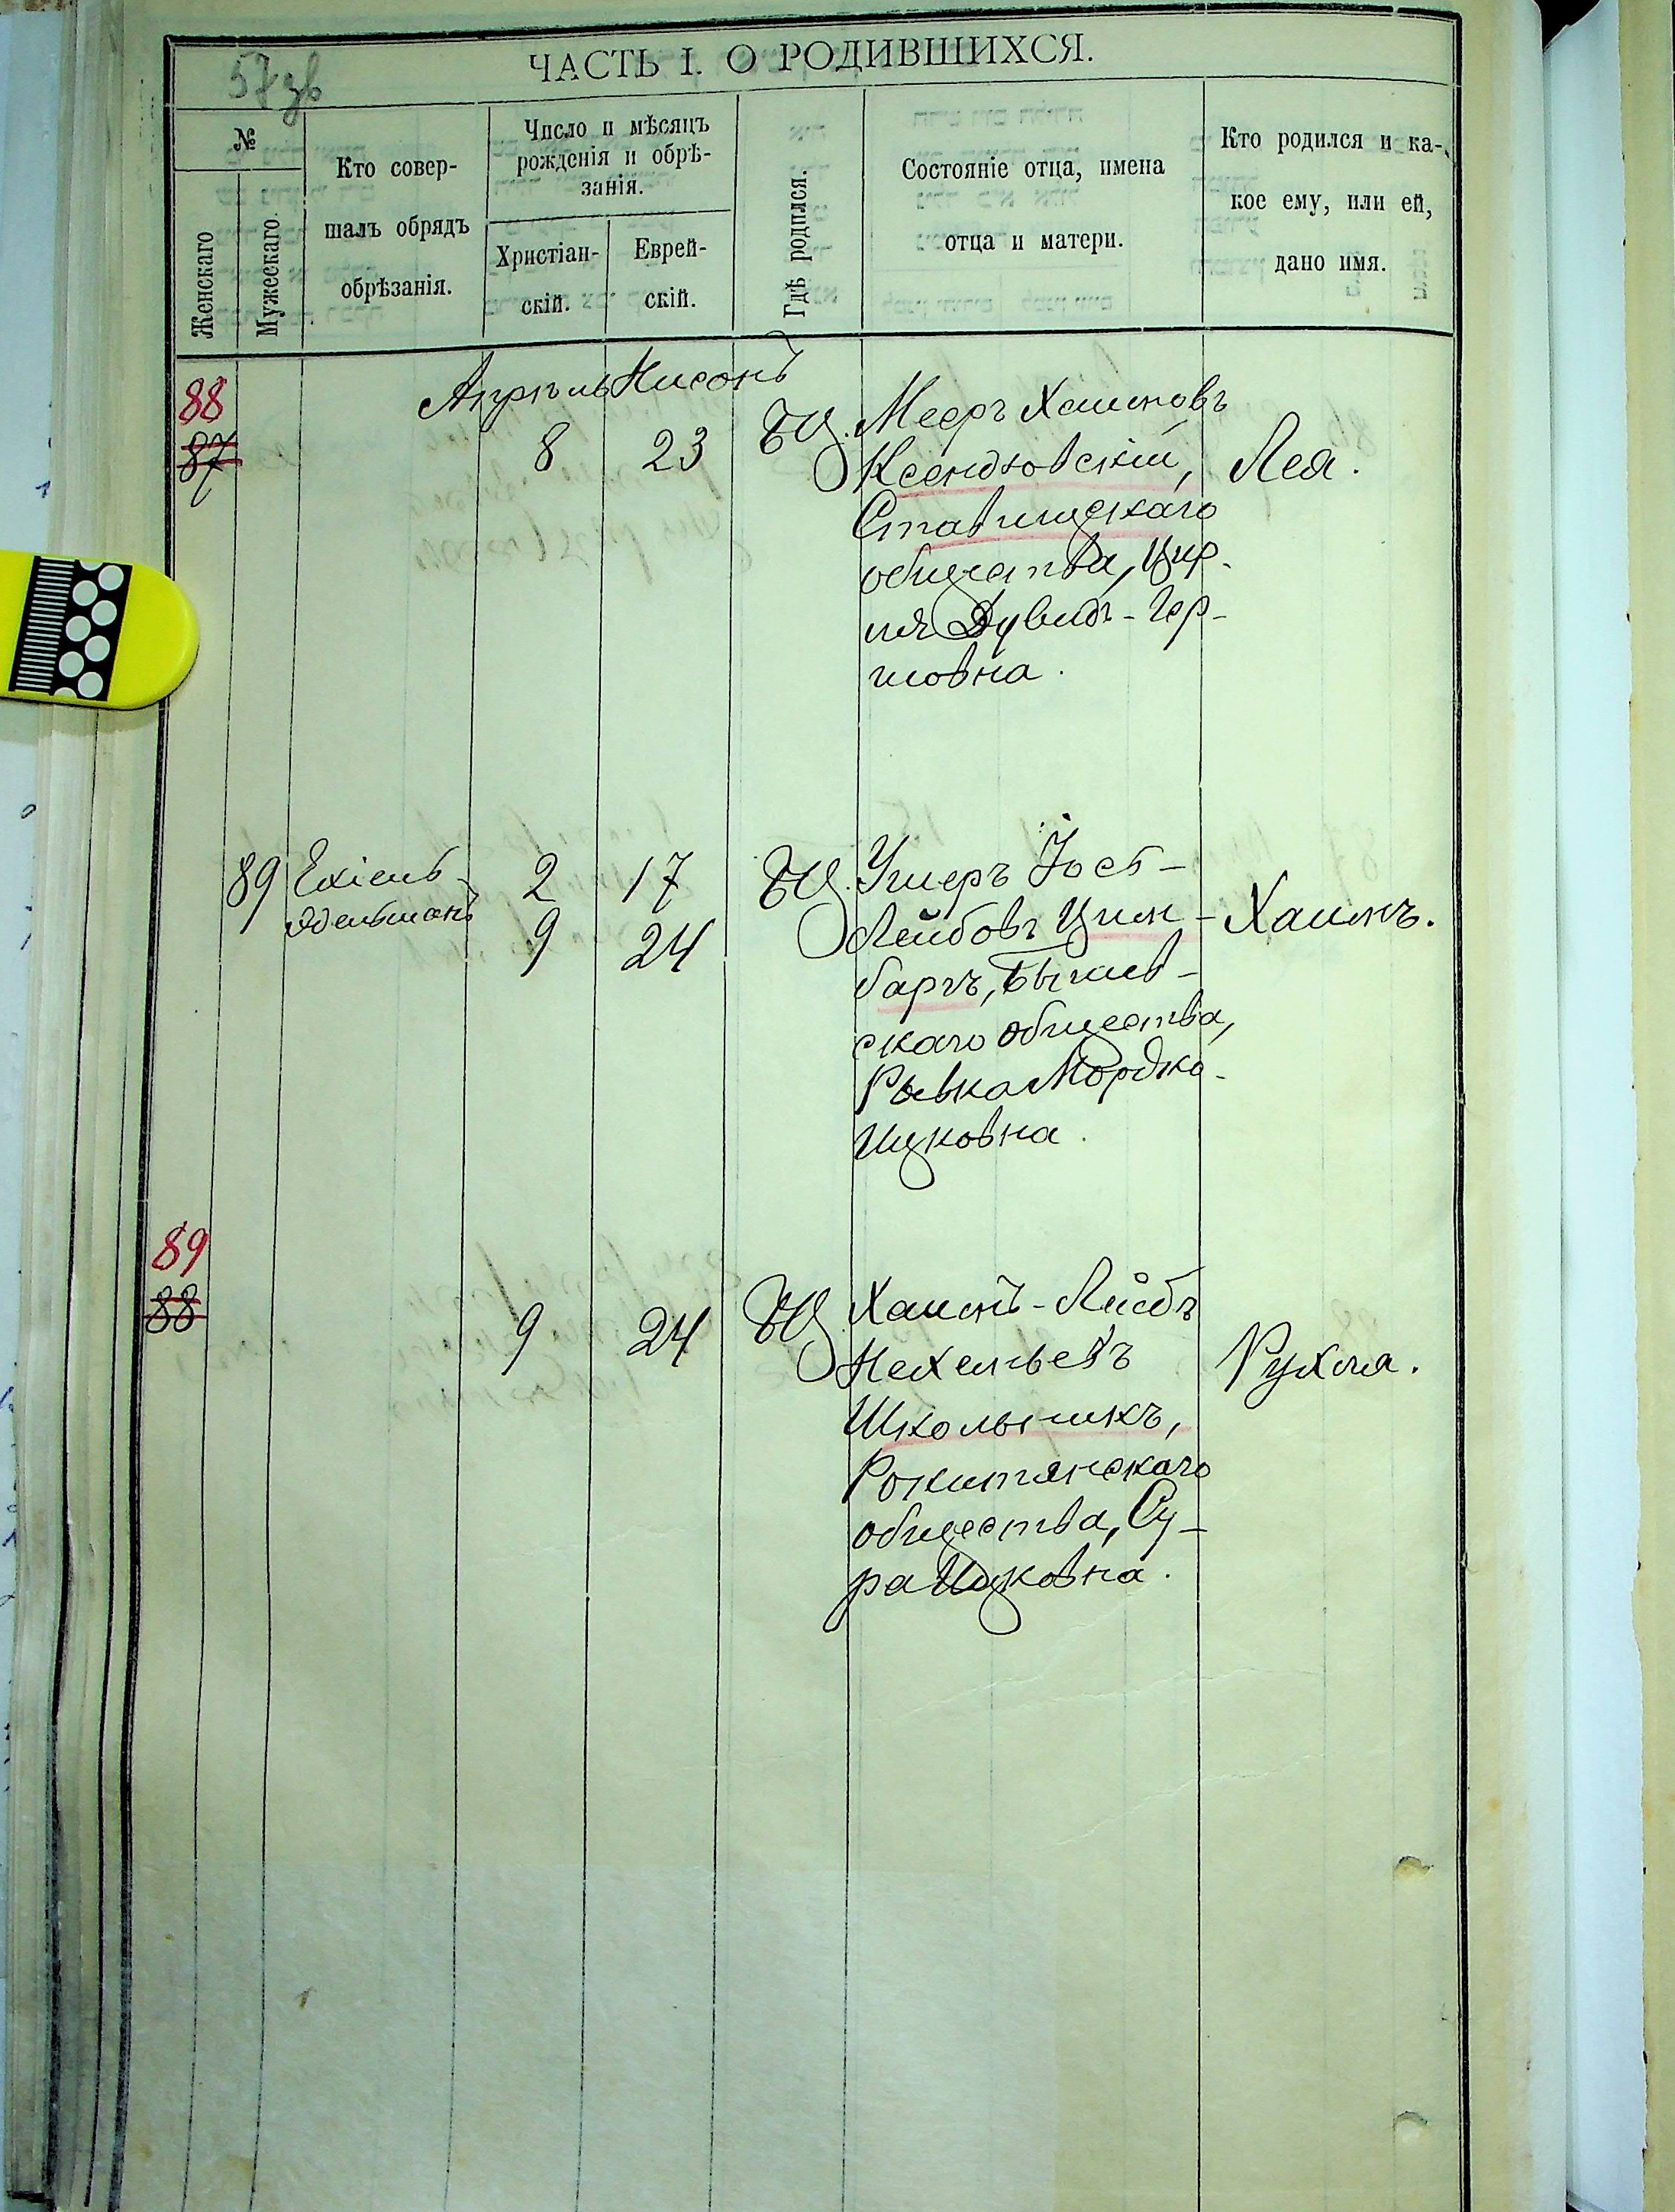 57 зв
ЧАСТЬ I. О РОДИВШИХСЯ.
№
Женскаго
Мужескаго.
Кто совер-
шалъ обрядъ
обрѣзанія.
Число и мѣсяцъ
рожденія и обрѣ-
занія.
Христіан-
скій.
Еврей-
скій.
Гдѣ родился.
Состояніе отца, имена
отца и матери.
Кто родился и ка-
кое ему, или ей,
дано имя.
Апрѣль Нисонъ
88
87
8 23 БЦ.
Меер Хаимовъ
Ксендзовскій,
Ставищскаго
общества, Цир-
ля Дувидъ-Гер-
шовна.
Лея.
89 Ехіель
Эдельманъ
2 17
9 24
БЦ.
Ушеръ Іось-
Лейбовъ Цим-
баргъ,
скаго общества,
Рывка Мордко-
Ицковна.
Хаимъ.
89
88
9 24 БЦ.
Хаимъ-Лейбъ
Нехемьевъ
Школьникъ,
Рокитянскаго
общества, Су-
ра Ицковна.
Рухля.